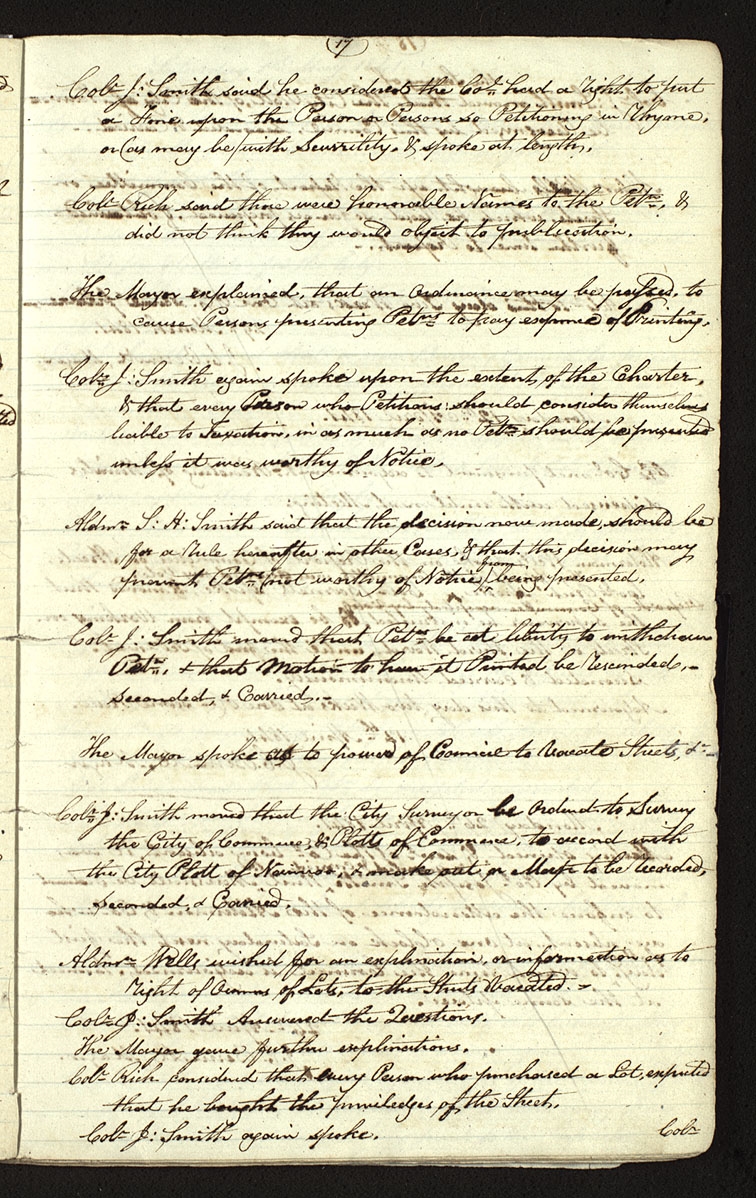 17
Col: J: Smith said he considered the Co: had a right to put
a Fine upon the Person or Persons so Petitioning in Rhyme,
or (as may be) with Scurrility, & spoke at length.
Col: Rich said those were honorable Names to the Petn., &
did not think they would object to publication.
The Mayor explained, that an Ordinance may be passed, to
cause Persons presenting Petns to pay expence of Printing.
Col: J: Smith again spoke upon the extent, of the Charter,
& that every Person who Petitions should consider themselves
liable to Taxation, in as much as no Petn should be presented
unless it was worthy of Notice.
Aldmn S. H: Smith said that the decision now made, should be
for a rule hereafter in other Cases, & that this decision may
prevent Petns (not worthy of Notice) from being presented.
Col: J: Smith moved that Petrs be at liberty to withdraw
Petn., & that Motion to have it Printed be rescinded,-
seconded, & Carried.-
The Mayor spoke as to power of Council to Vacate Streets, &c-
Col: J: Smith moved that the City Surveyor be Ordered to Survey
the City of Commerce, & Plotts of Commerce, to accord with
the City Plott of Nauvoo, & make out a Map to be recorded,
seconded, & Carried.
Aldmn Wells wished for an explination, or information as to
right of Owners of Lots, to the Streets Vacated.-
Col: J: Smith Answered the Questions.
The Mayor gave further explinations.
Col: Rich considered that every Person who purchased a Lot, expected
that he bought the priviledges of the Street.
Col: J: Smith again spoke.
Col: